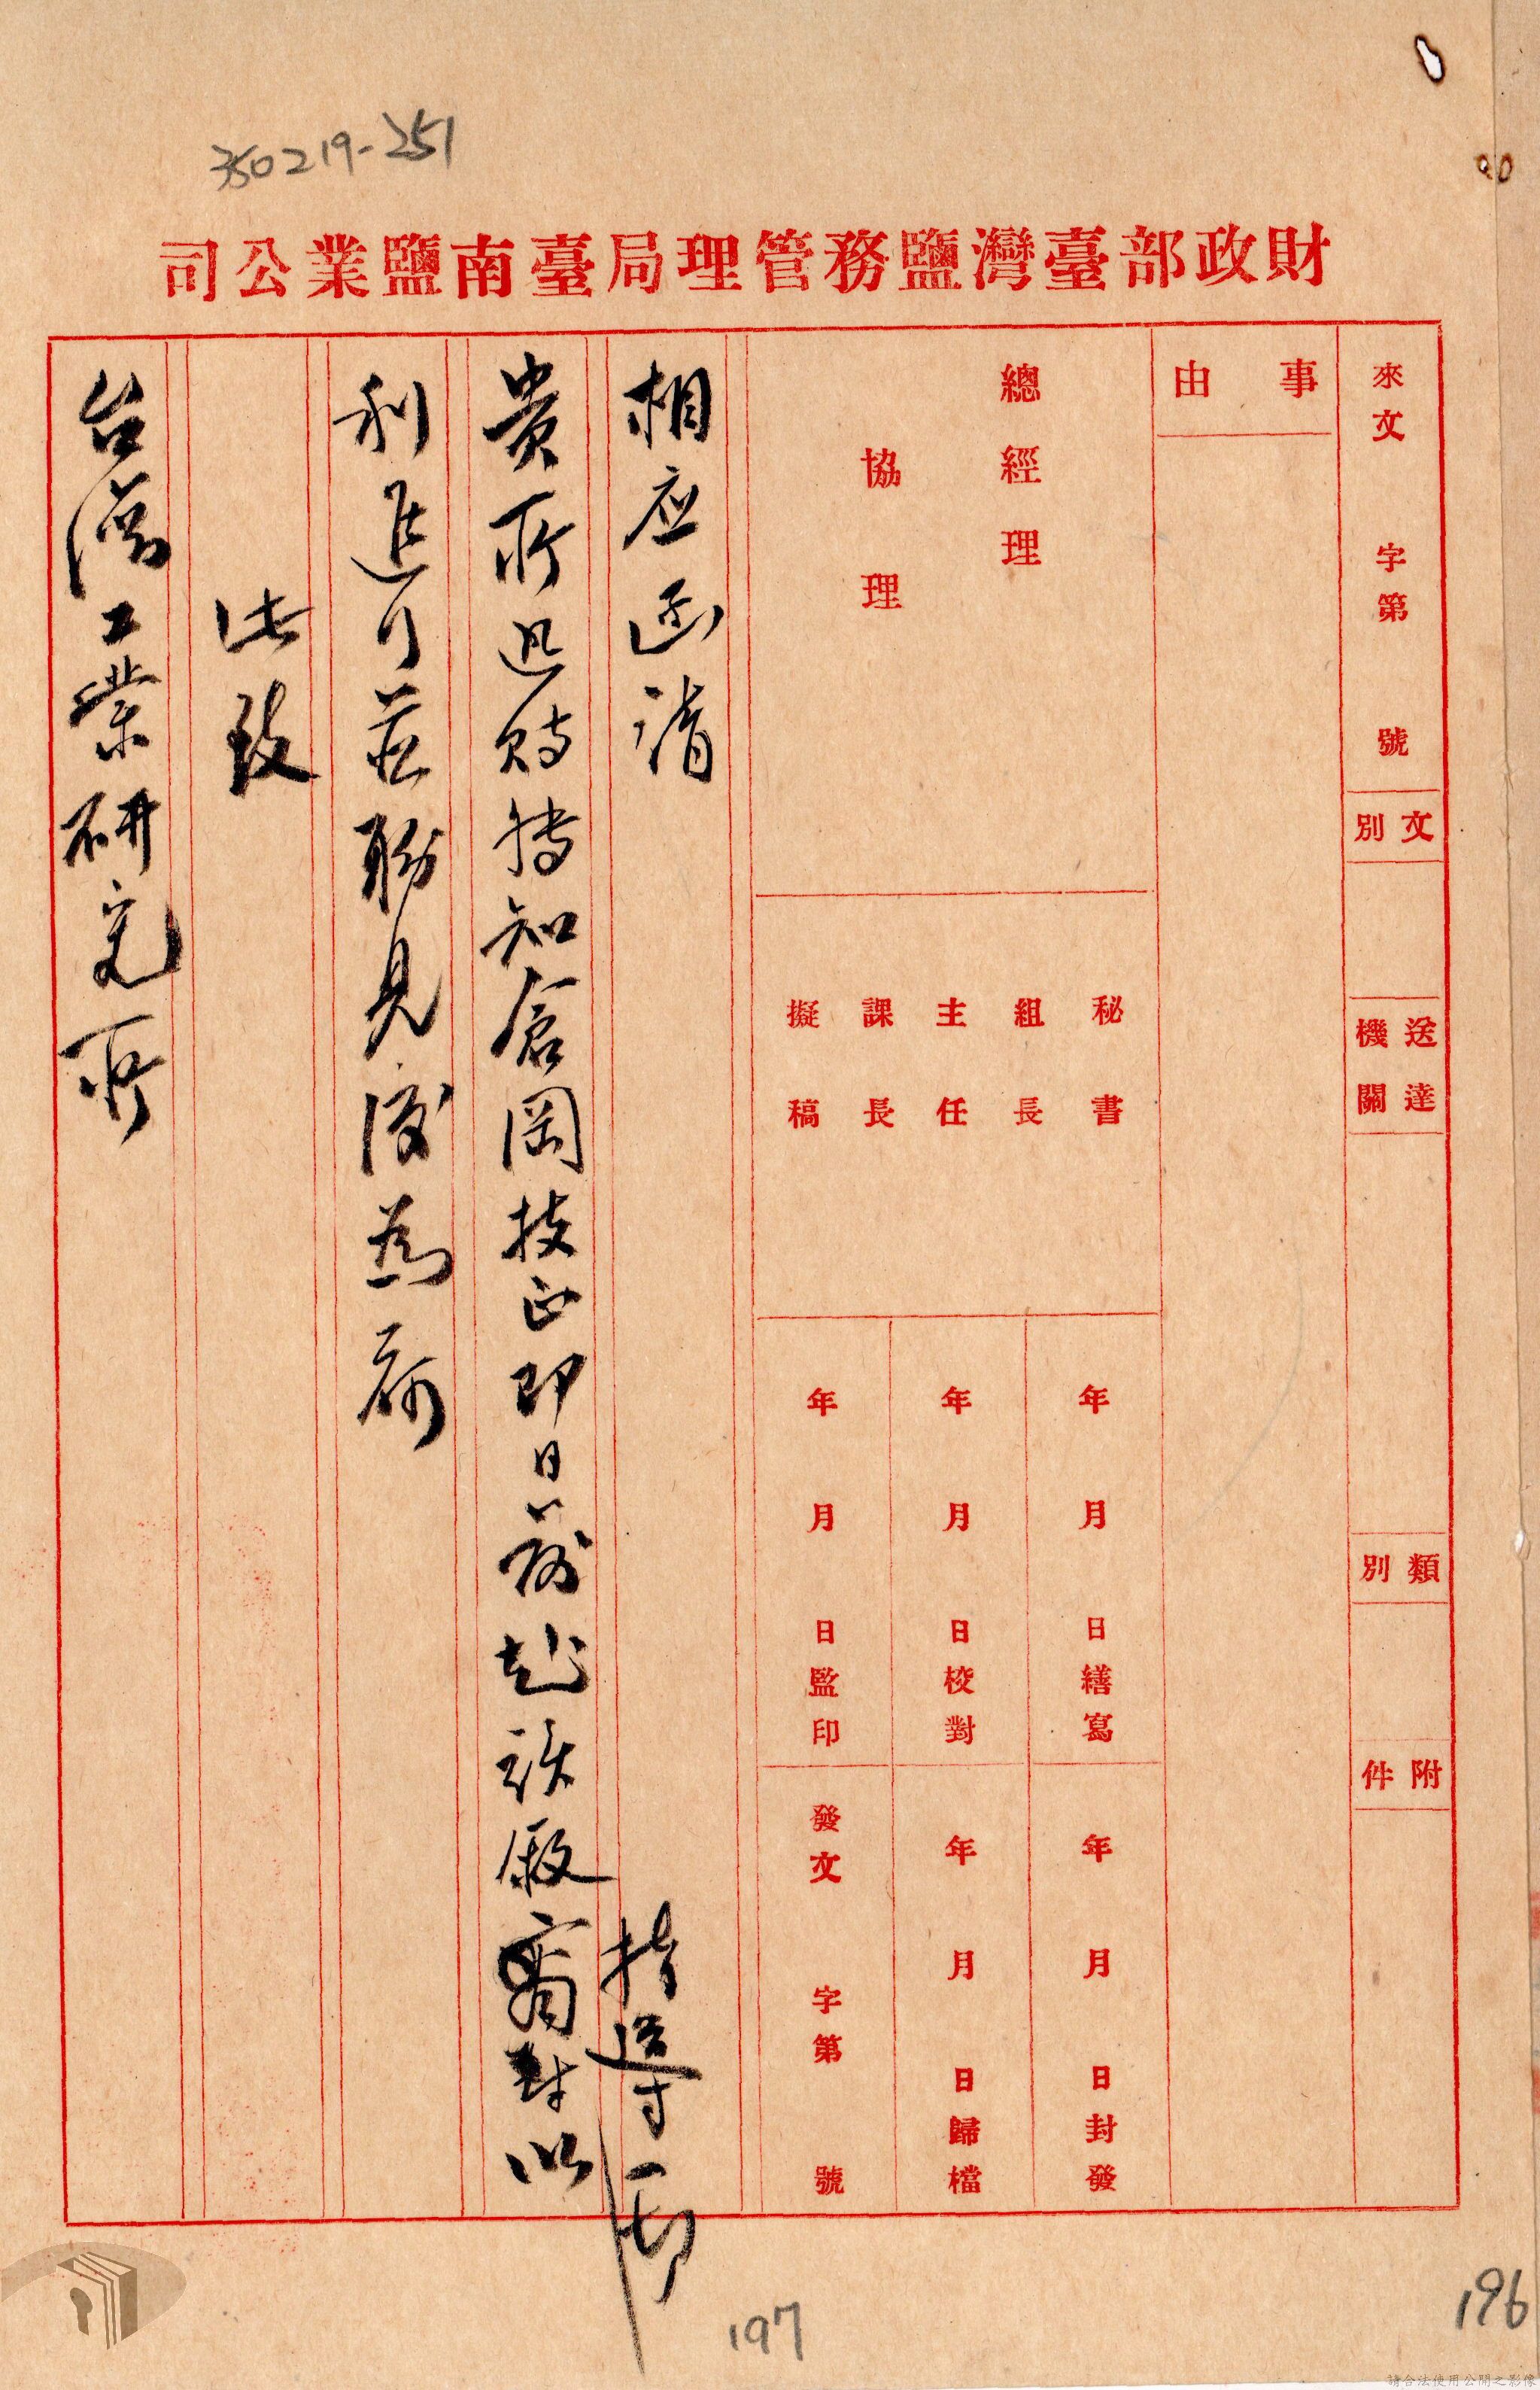 350219-251
財政部臺灣鹽務管理局臺南鹽業公司
來文 字第 號
文別
送達機關
類別
附件
事由
總經理
協理
秘書
組長
主任
課長
擬稿
年 月 日繕寫
年 月 日校對
年 月 日監印
年 月 日封發
年 月 日歸檔
發文 字第 號
相应函請
貴所迅賜轉知倉岡技正即日前赴該廠
指導一切
以
利進行並聯見復為荷
此致
台灣工業研究所
197
196
請合法使用公開之影像